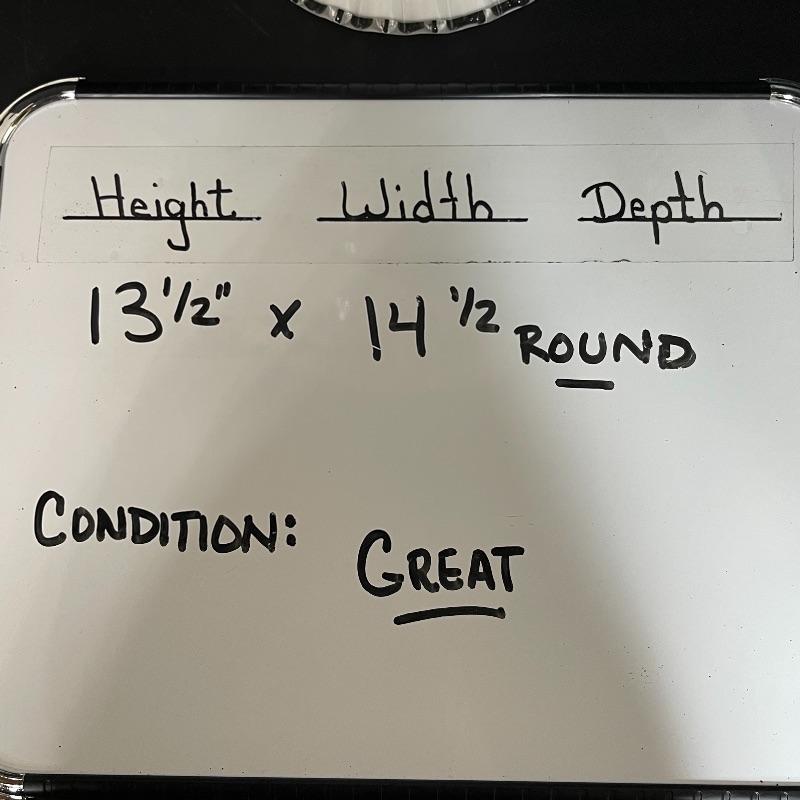 Height Width Depth
13 1/2" x 14 1/2 ROUND
CONDITION: GREAT